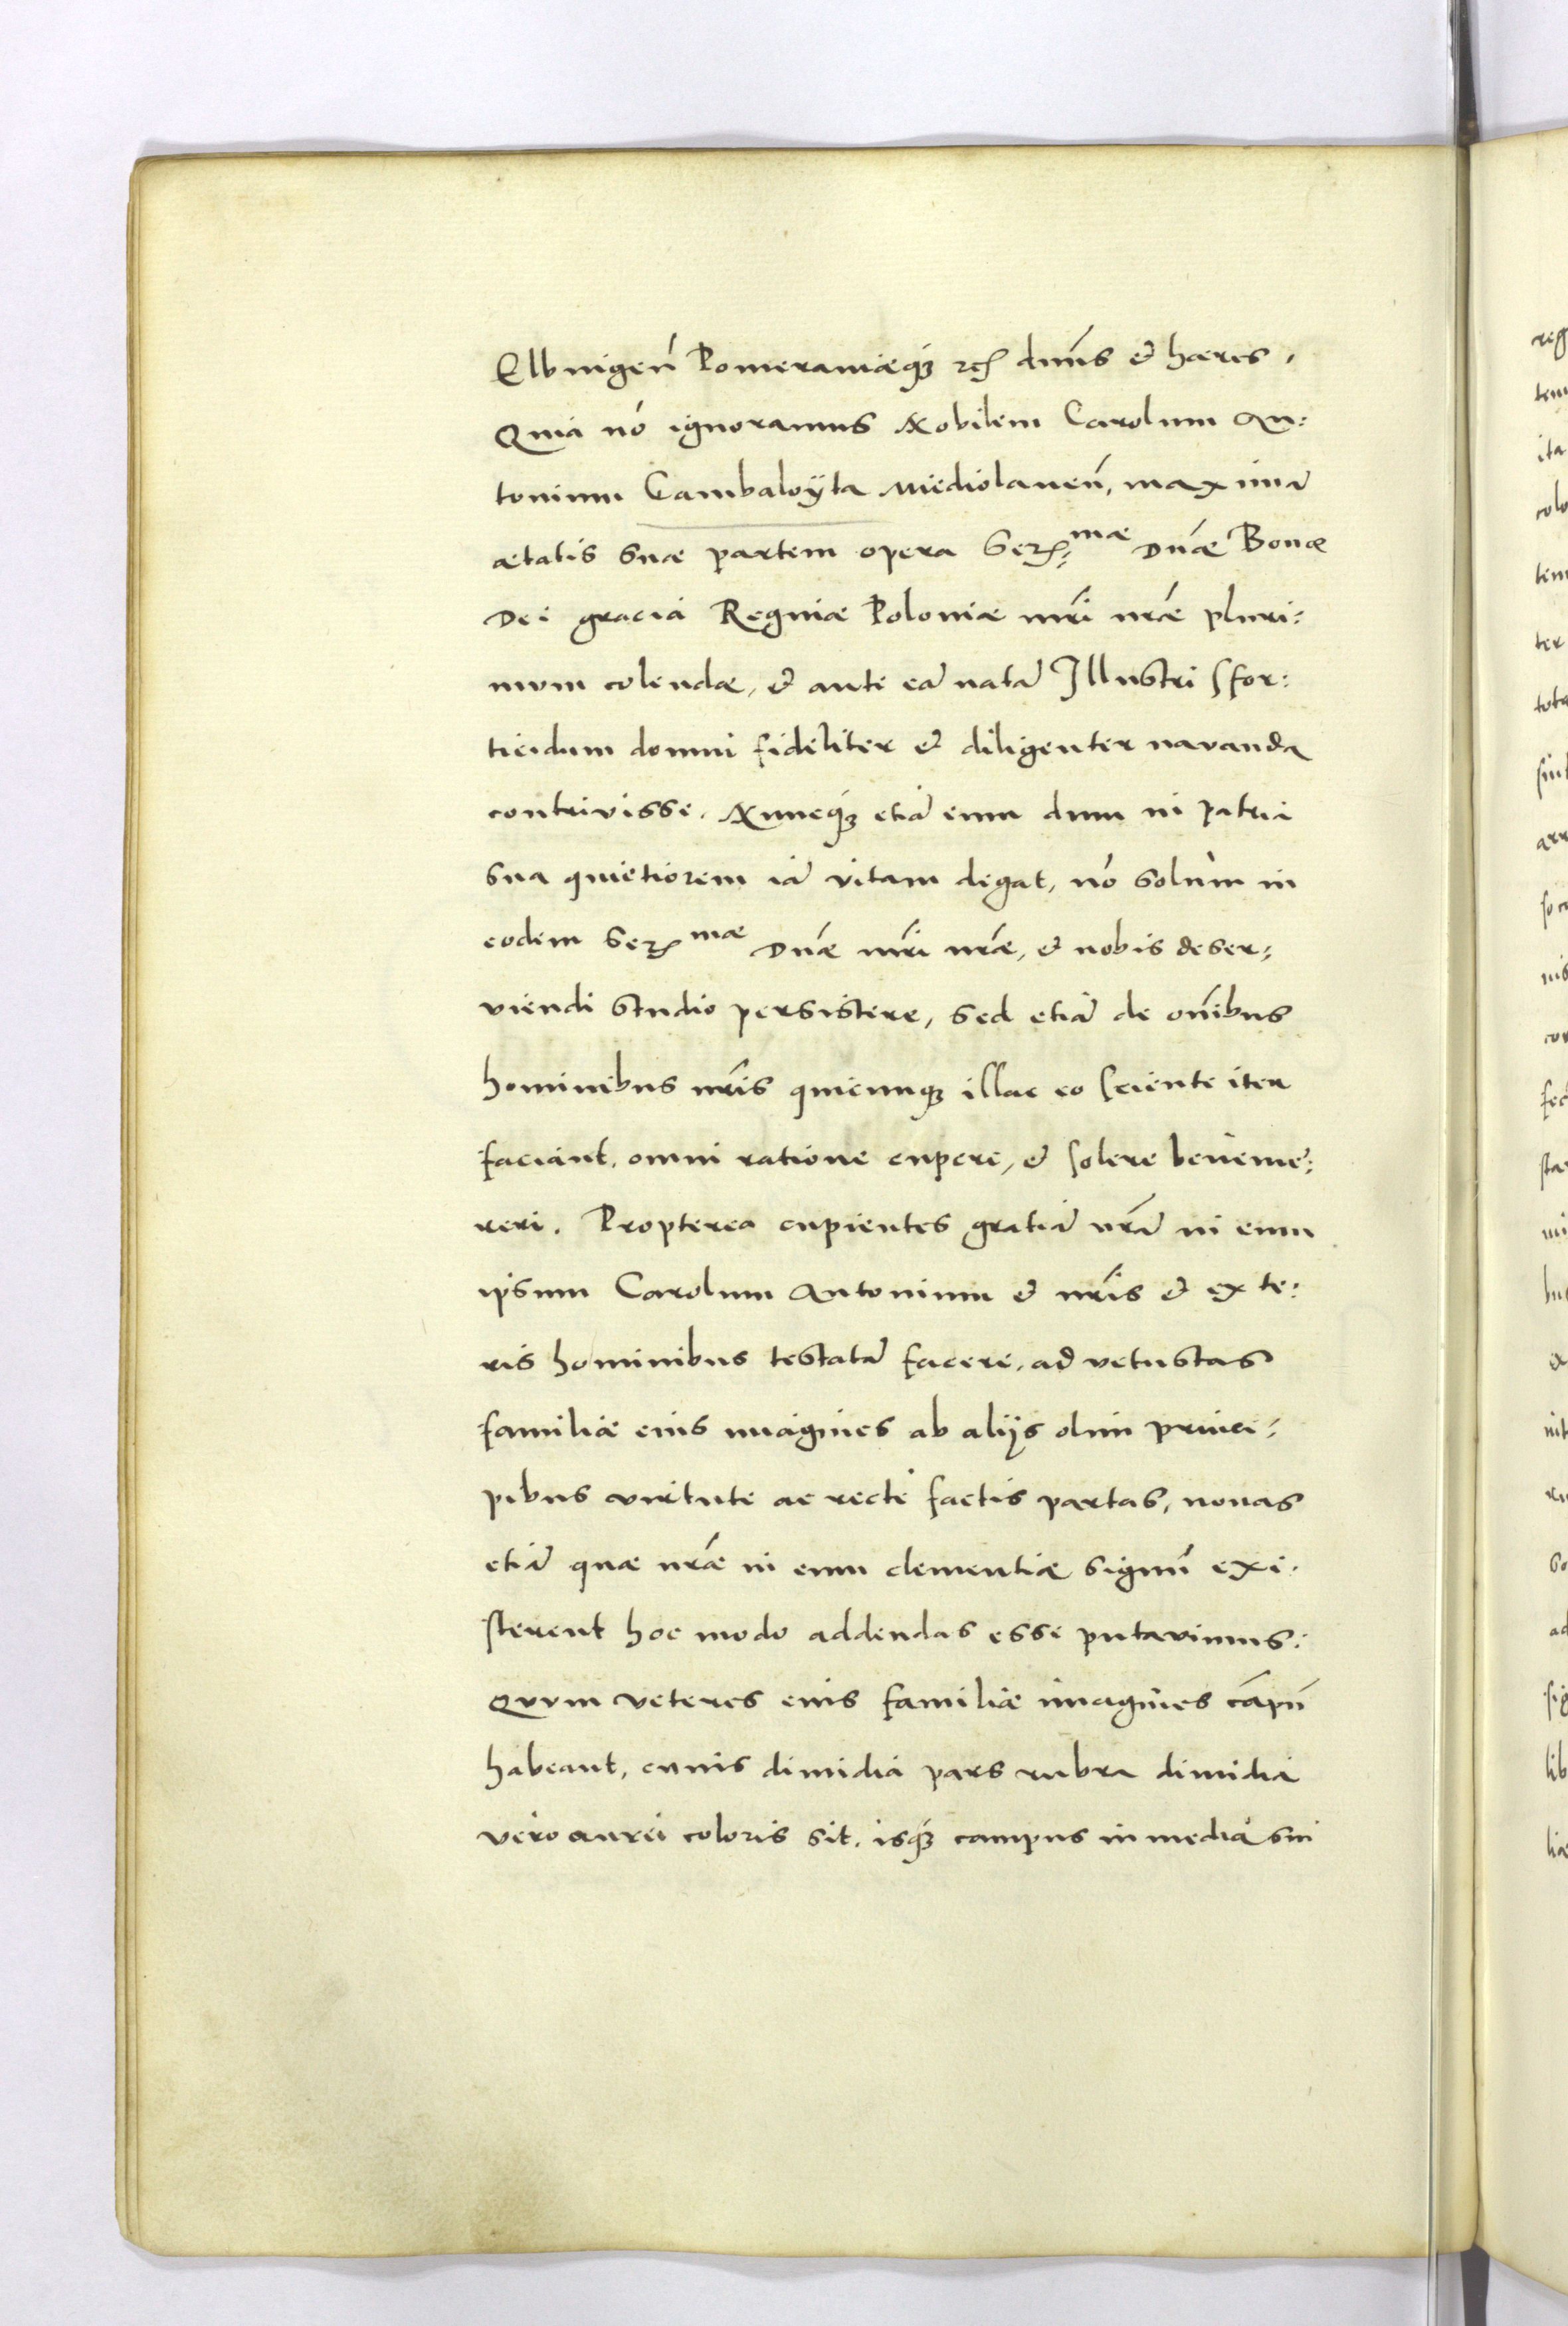 Elbingen̄ Pomeraniæq́ꝫ ꝛcꝭ dm̄s et hæres.
Quia nō ignoramus Nobilem Carolum An:
tonium Cambaloÿta Mediolanen̄, maximā
ætatis suæ partem opera Serꝭ:mæ Dnǣ Bonæ
Dei gracia Reginæ Poloniæ mr̄i nr̄æ pluri:
mum colendæ, et ante eā natā Illustri Sfor:
ticidum domui fideliter et diligenter navanda
contrivisse. Nuncq́ꝫ etiā eum dum in patria
sua quietiorem iā vitam degat, nō solùm in
eodem Serꝭmæ Dnǣ mr̄i nr̄æ, et nobis deser:
viendi studio persistere, sed etiā de om̄ibus
hominibus nr̄is quicunqꝫ illac eo sciente iter
faciant, omni ratione cupere, et solere beneme:
reri. Propterea cupientes gratiā nr̄ā in eum
ipsum Carolum Antonium et nr̄is et exte:
ris hominibus testatā facere, ad vetustas
familiæ eius imagines ab alijs olim princi:
pibus virtute ac rectè factis partas, novas
etiā quæ nr̄æ in eum clementiæ signū exi:
sterent hoc modo addendas esse putavimus:
Quum veteres eius familiæ imagines cāpū
habeant, cuius dimidia pars rubra dimidia
vero aurei coloris sit, isq́ꝫ campus in media sui